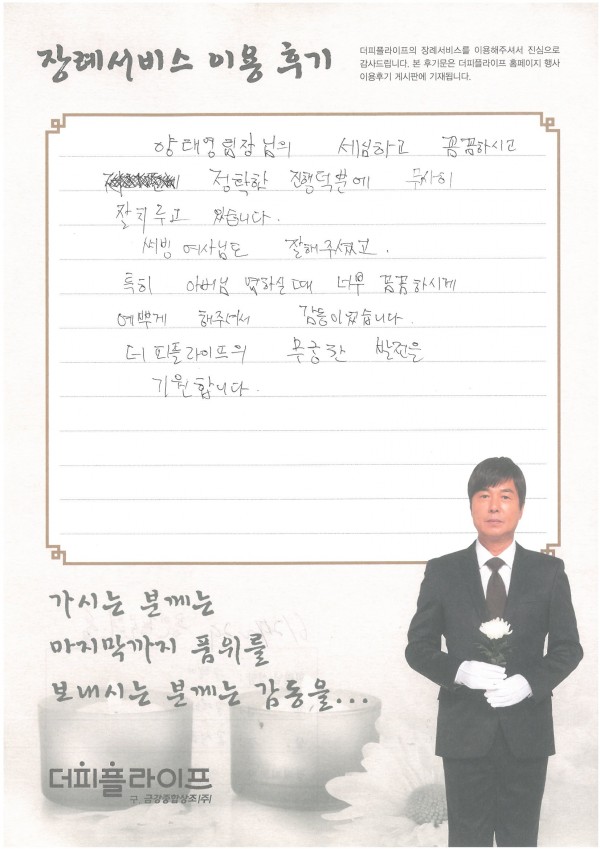 장례서비스 이용 후기
더피플라이프의 장례서비스를 이용해주셔서 진심으로
감사드립니다. 본 후기문은 더피플라이프 홈페이지 행사
이용후기 게시판에 기재됩니다.
양태영팀장님의 세심하고 꼼꼼하시고
정확한 진행덕분에 무사히
잘치루고 있습니다.
써빙 여사님도 잘해주셨고.
특히 아버님 염하실때 너무 꼼꼼하시게
예쁘게 해주셔서 감동이었습니다.
더피플라이프의 무궁한 발전을
기원합니다.
가시는 분께는
마지막까지 품위를
보내시는 분께는 감동을...
더피플라이프
구. 금강종합상조(주)